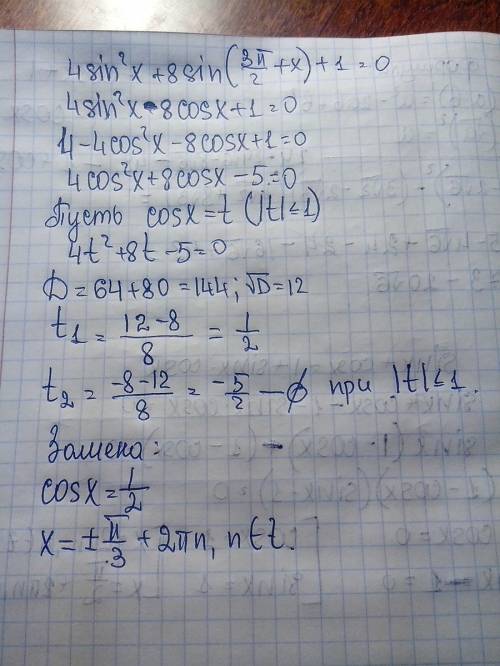 4sin²x+8sin(3π/2+x)+1=0
4sin²x-8cosx+1=0
4-4cos²x-8cosx+1=0
4cos²x+8cosx-5=0
Пусть cosx=t (|t|≤1)
4t²+8t-5=0
D=64+80=144; √D=12
t₁=(12-8)/8=1/2
t₂=(-8-12)/8=-5/2 – ∅ при |t|≤1.
Замена:
cosx=1/2
x=±π/3+2πn, n∈Z.